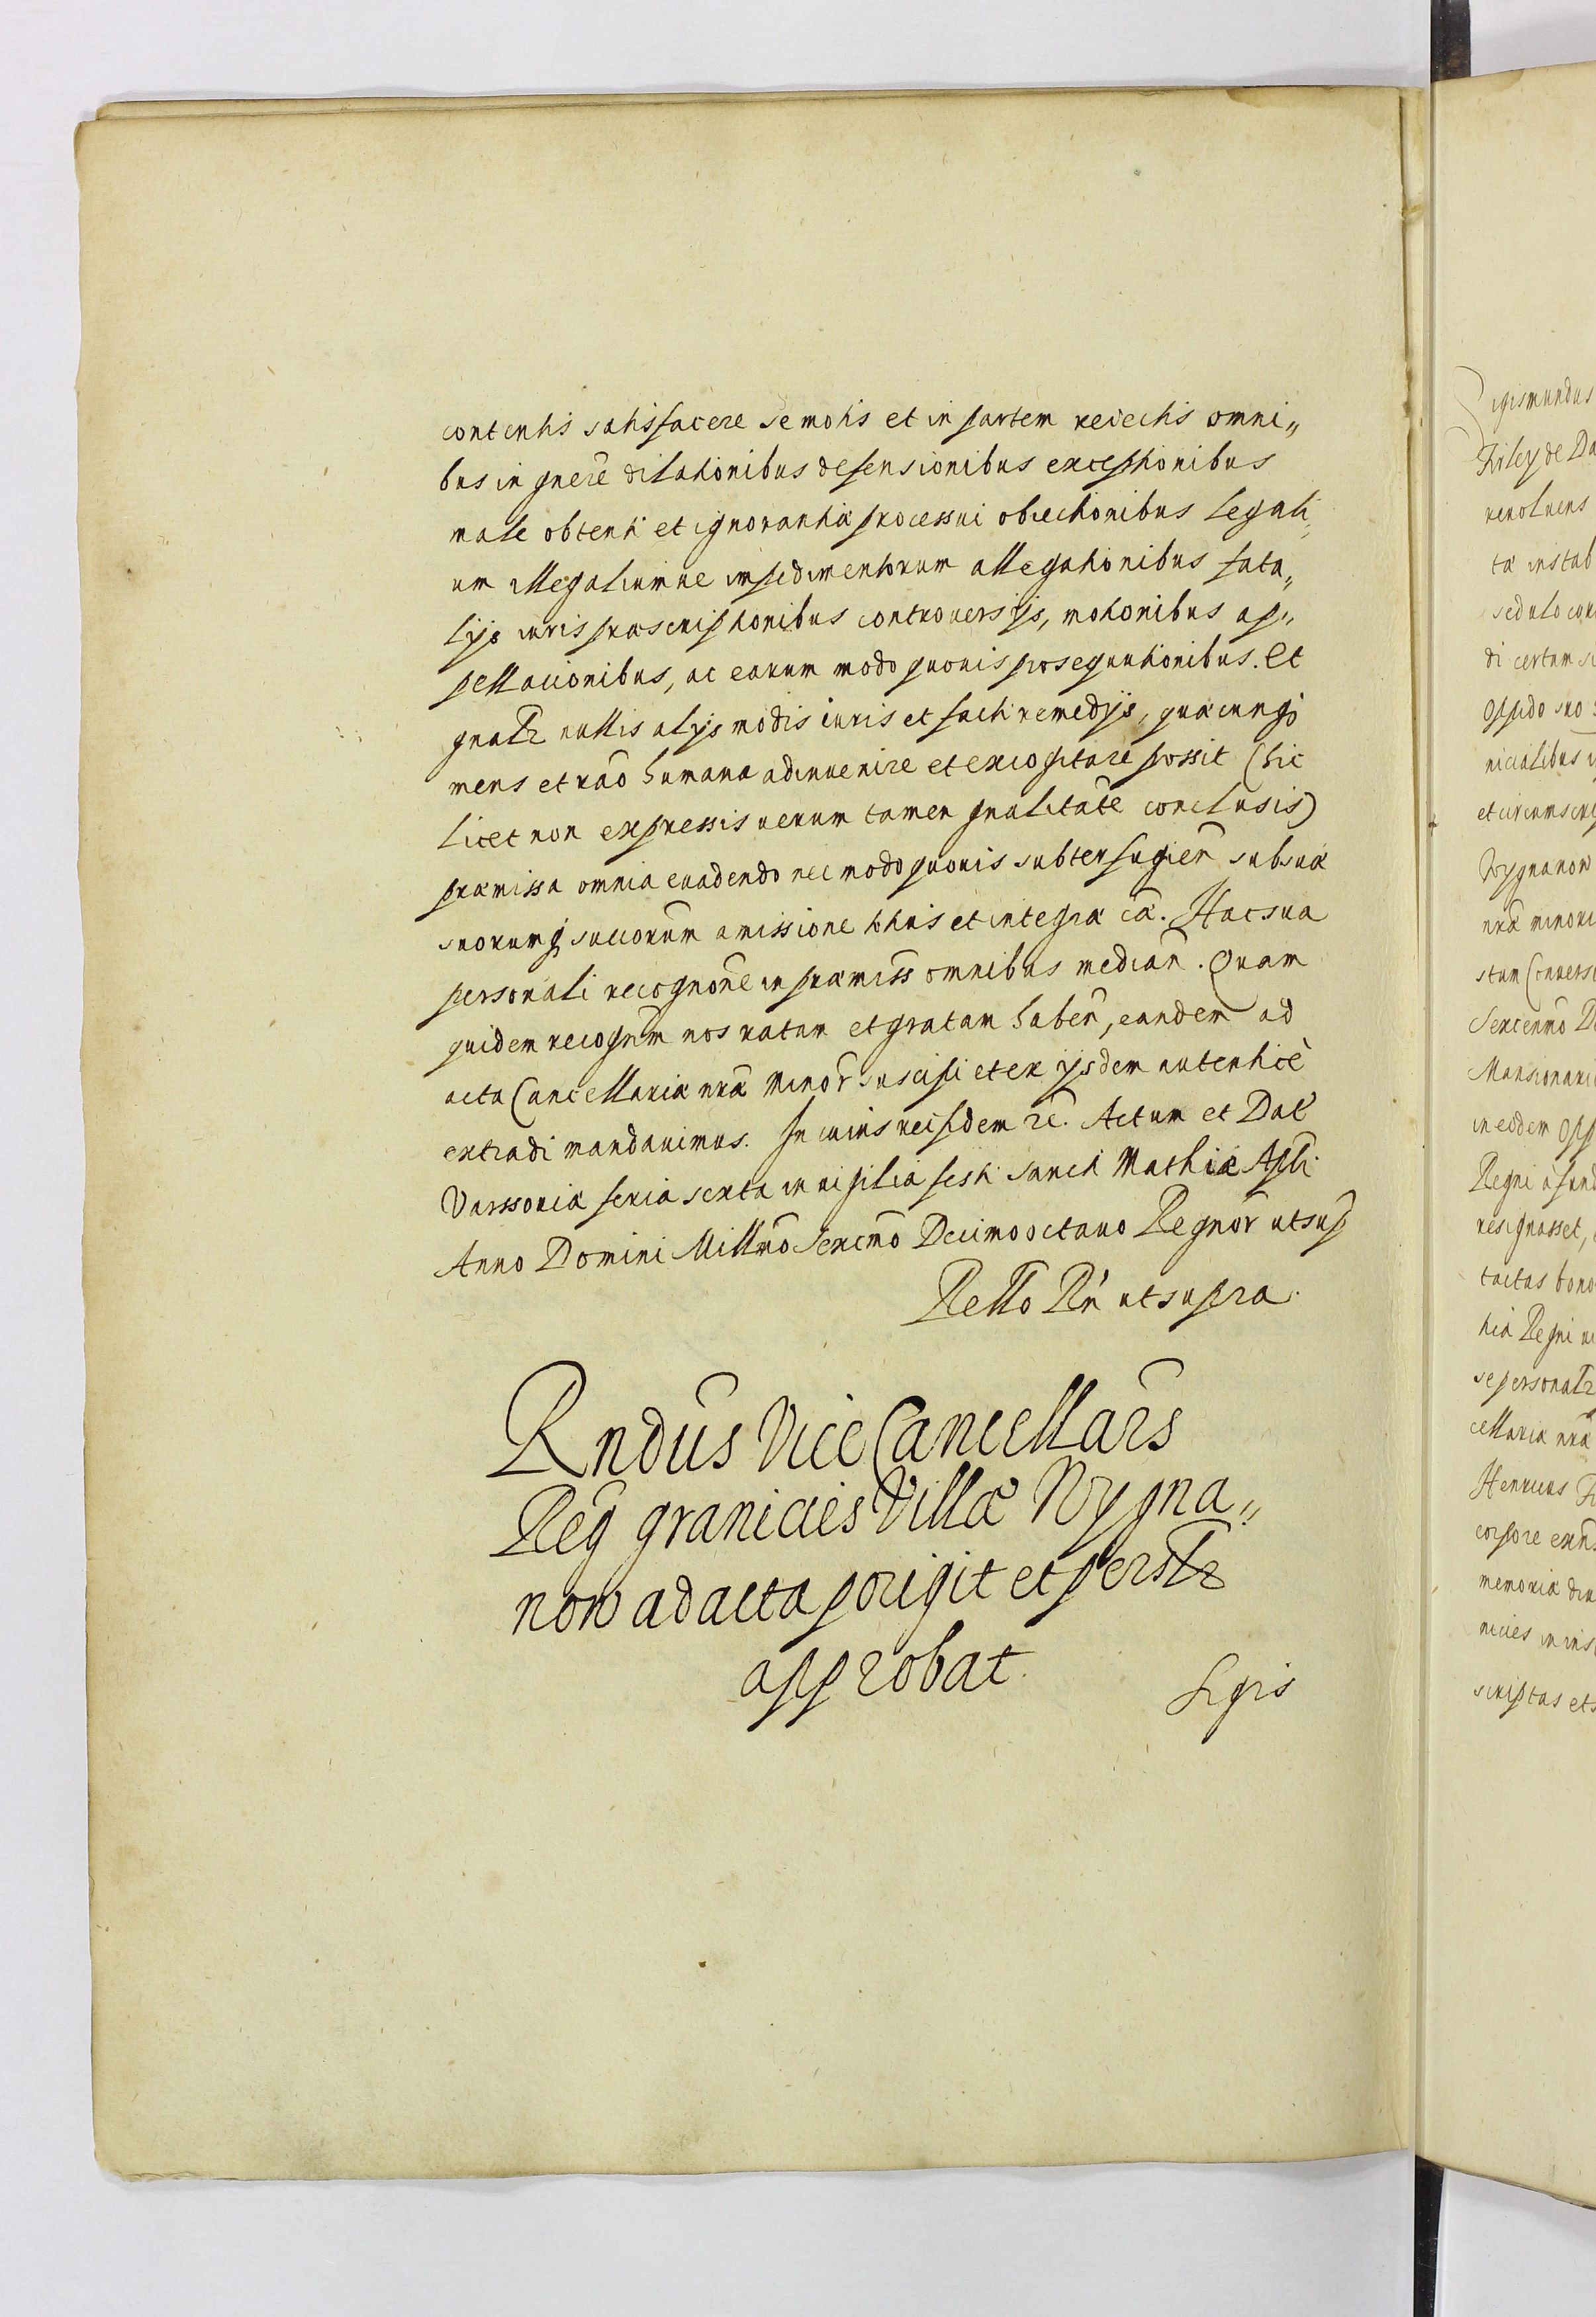 contentis satisfacere semotis et in partem reiectis omni„
bus in gnere dilationibus defensionibus exceptionibus
male obtenti et ignorantiæ processui obiectionibus legali„
um illegaliumue impedimentorum allegationibus fata„
lijs iuris præscriptionibus controuersijs, motionibus ap„
pellacionibus, ac earum modo quouis prosequutionibus. Et
gnalr nullis alijs modis iuris et facti remedijs, quæcunqȝ
mens et rao humana adinuenire et excogitare possit (hic
licet non expressis uerum tamen gnalitate conclusis)
præmissa omnia euadendo nec modo quouis subterfugien sub suæ
suorumqȝ succorum amissione litis et integræ cæ. Hac sua
personali recognone in præmiss omnibus median. Quam
quidem recognm nos ratam et gratam haben, eandem ad
acta Cancellariæ nræ minor suscipi et ex ijsdem autenticè
extradi mandauimus. In cuius rei fidem rc. Actum et Dat
Varssouiæ feria sexta in uigilia festi sancti Mathiæ Apli.
Anno Domini Millmo Sexcmo Decimo octauo Regnor ut sup
Rello Rn ut supra.
Rndus Vice Cancellars
Reg granicies Villæ Wygna„
now ad acta porigit et perslr
approbat.
Sigis
igismundus
Firley de Da
reuoluens
sedulo
di certam
Oppido suo
nicialibus
et circumscrip
Wygnanow
nræ minori
Sexcenmo De
Mansionari
in eodem Opp
Regni a fund
resignasset,
tactas bono
tiæ Regni
se personalr
cellariæ nræ
Henricus Fi
corpore exns
memoria
nicies in ins
scriptas et